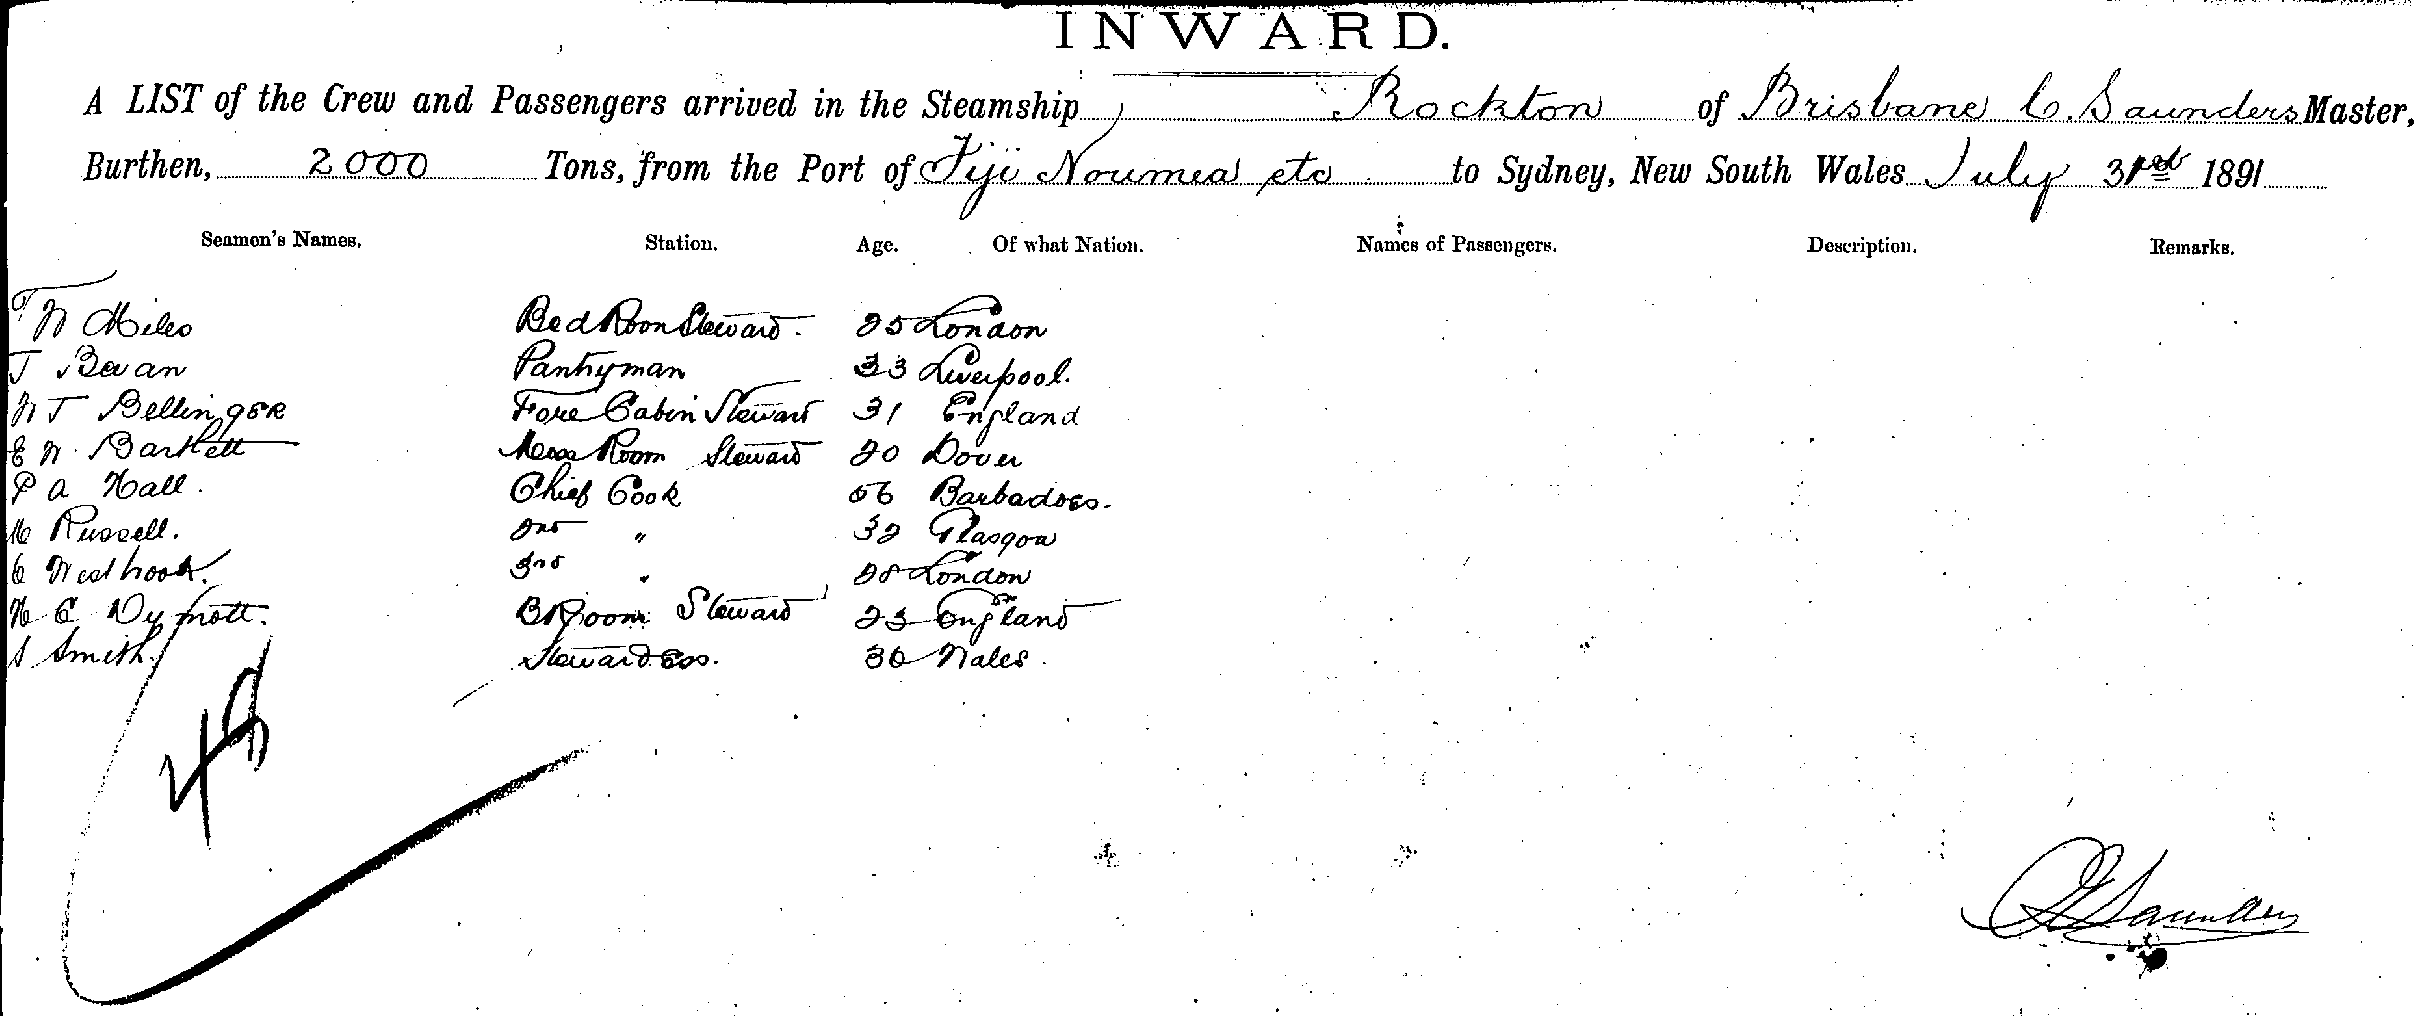 INWARD.
A LIST of the Crew and Passengers arrived in the Steamship Rockton of Brisbane C. Saunders Master,
Burthen, 2000 Tons, from the Port of Fiji Noumea etc to Sydney, New South Wales July 31st 1891
Seamen's Names. Station. Age. Of what Nation. Names of Passengers. Description. Remarks.
W Miles Bed Room Steward. 25 London
J Bevan Pantryman 33 Liverpool.
W J Bellinger Fore Cabin Steward 31 England
E W Bartlett Mess Room Steward 20 Dover
P A Hall. Chief Cook 56 Barbadoes.
M Russell. 2nd " 32 Glasgow
C Westbrook. 3rd " 28 London
H E Dymott. B Room Steward 23 England
S Smith. Stewardess. 36 Wales.
48
Saunders